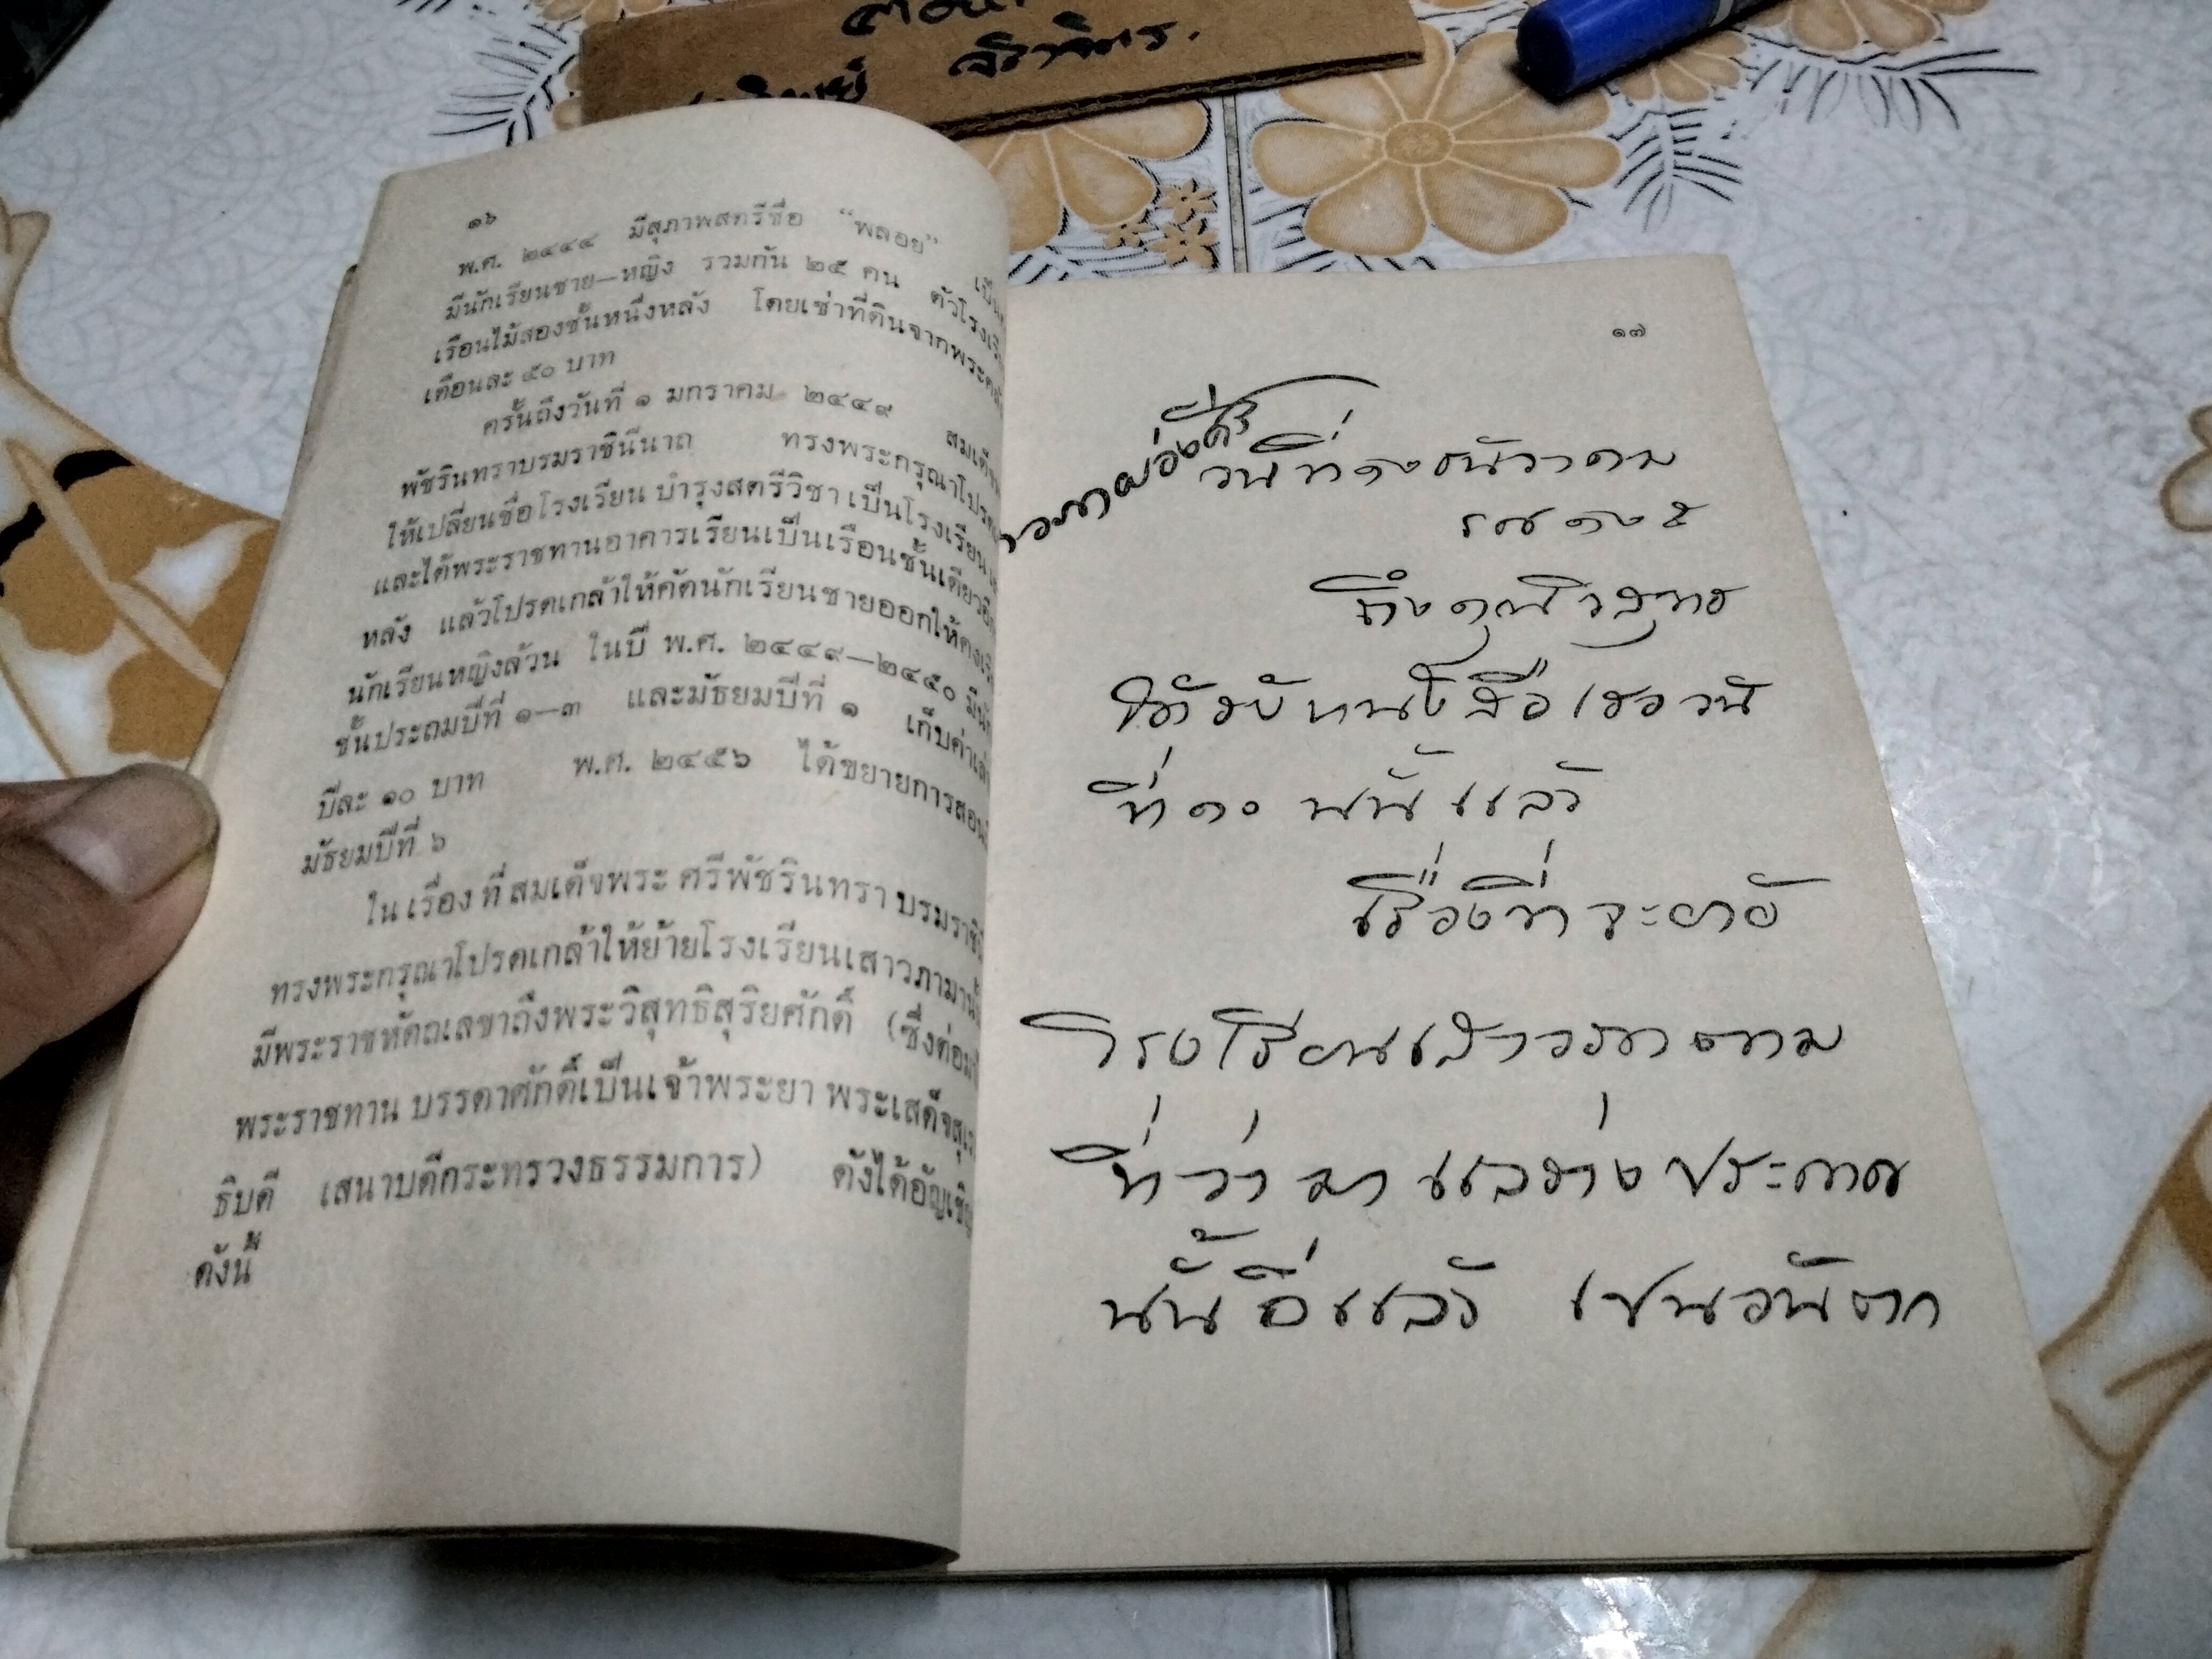 ๑๖
พ.ศ. ๒๔๔๔ มีสุภาพสตรีชื่อ “พลอย” เป็น
มีนักเรียนชาย—หญิง รวมกัน ๒๕ คน ตัวโรงเรี
เรือนไม้สองชั้นหนึ่งหลัง โดยเช่าที่ดินจากพระคลั
เดือนละ ๕๐ บาท
ครั้นถึงวันที่ ๑ มกราคม ๒๔๔๙ สมเด็จ
พัชรินทราบรมราชินีนาถ ทรงพระกรุณาโปรด
ให้เปลี่ยนชื่อโรงเรียน บำรุงสตรีวิชา เป็นโรงเรียน
และได้พระราชทานอาคารเรียนเป็นเรือนชั้นเดียวอีก
หลัง แล้วโปรดเกล้าให้คัดนักเรียนชายออกให้คง
นักเรียนหญิงล้วน ในปี พ.ศ. ๒๔๔๙—๒๔๕๐ มีนั
ชั้นประถมปีที่ ๑—๓ และมัธยมปีที่ ๑ เก็บค่าเล่
ปีละ ๑๐ บาท พ.ศ. ๒๔๕๖ ได้ขยายการสอน
มัธยมปีที่ ๖
ใน เรื่อง ที่ สมเด็จพระ ศรีพัชรินทรา บรมราชินี
ทรงพระกรุณาโปรดเกล้าให้ย้ายโรงเรียนเสาวภามานั้
มีพระราชหัตถเลขาถึงพระวิสุทธิสุริยศักดิ์ (ซึ่งต่อม
พระราชทาน บรรดาศักดิ์เป็นเจ้าพระยา พระเสด็จสุเร
ธิบดี เสนาบดีกระทรวงธรรมการ) ดังได้อัญเชิญ
ดังนี้
๑๗
วันที่ ๑๖ ธันวาคม
รศ ๑๒๕
ถึงคุณวิสุทธ
ได้รับหนังสือเธอวัน
ที่ ๑๐ นั้นแล้ว
เรื่องที่จะย้าย
โรงเรียนเสาวภาตาม
ที่ว่ามา และร่างประกาศ
นั้นดีแล้ว เปนอันตก